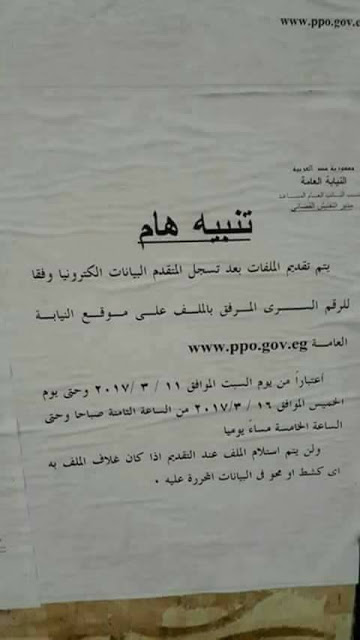 www.ppo.gov.e
جمهورية مصر العربية
النيابة العامة
مدير التفتيش القضائى
تنبيه هام
يتم تقديم الملفات بعد تسجل المتقدم البيانات الكترونيا وفقا
للرقم السرى المرفق بالملف على موقع النيابة
العامة www.ppo.gov.eg
اعتباراً من يوم السبت الموافق ١١ / ٣ / ٢٠١٧ وحتى يوم
الخميس الموافق ١٦ / ٣ /٢٠١٧ من الساعة الثامنة صباحا وحتى
الساعة الخامسة مساءً يوميا
ولن يتم استلام الملف عند التقديم اذا كان غلاف الملف به
اى كشط او محو فى البيانات المحررة عليه .